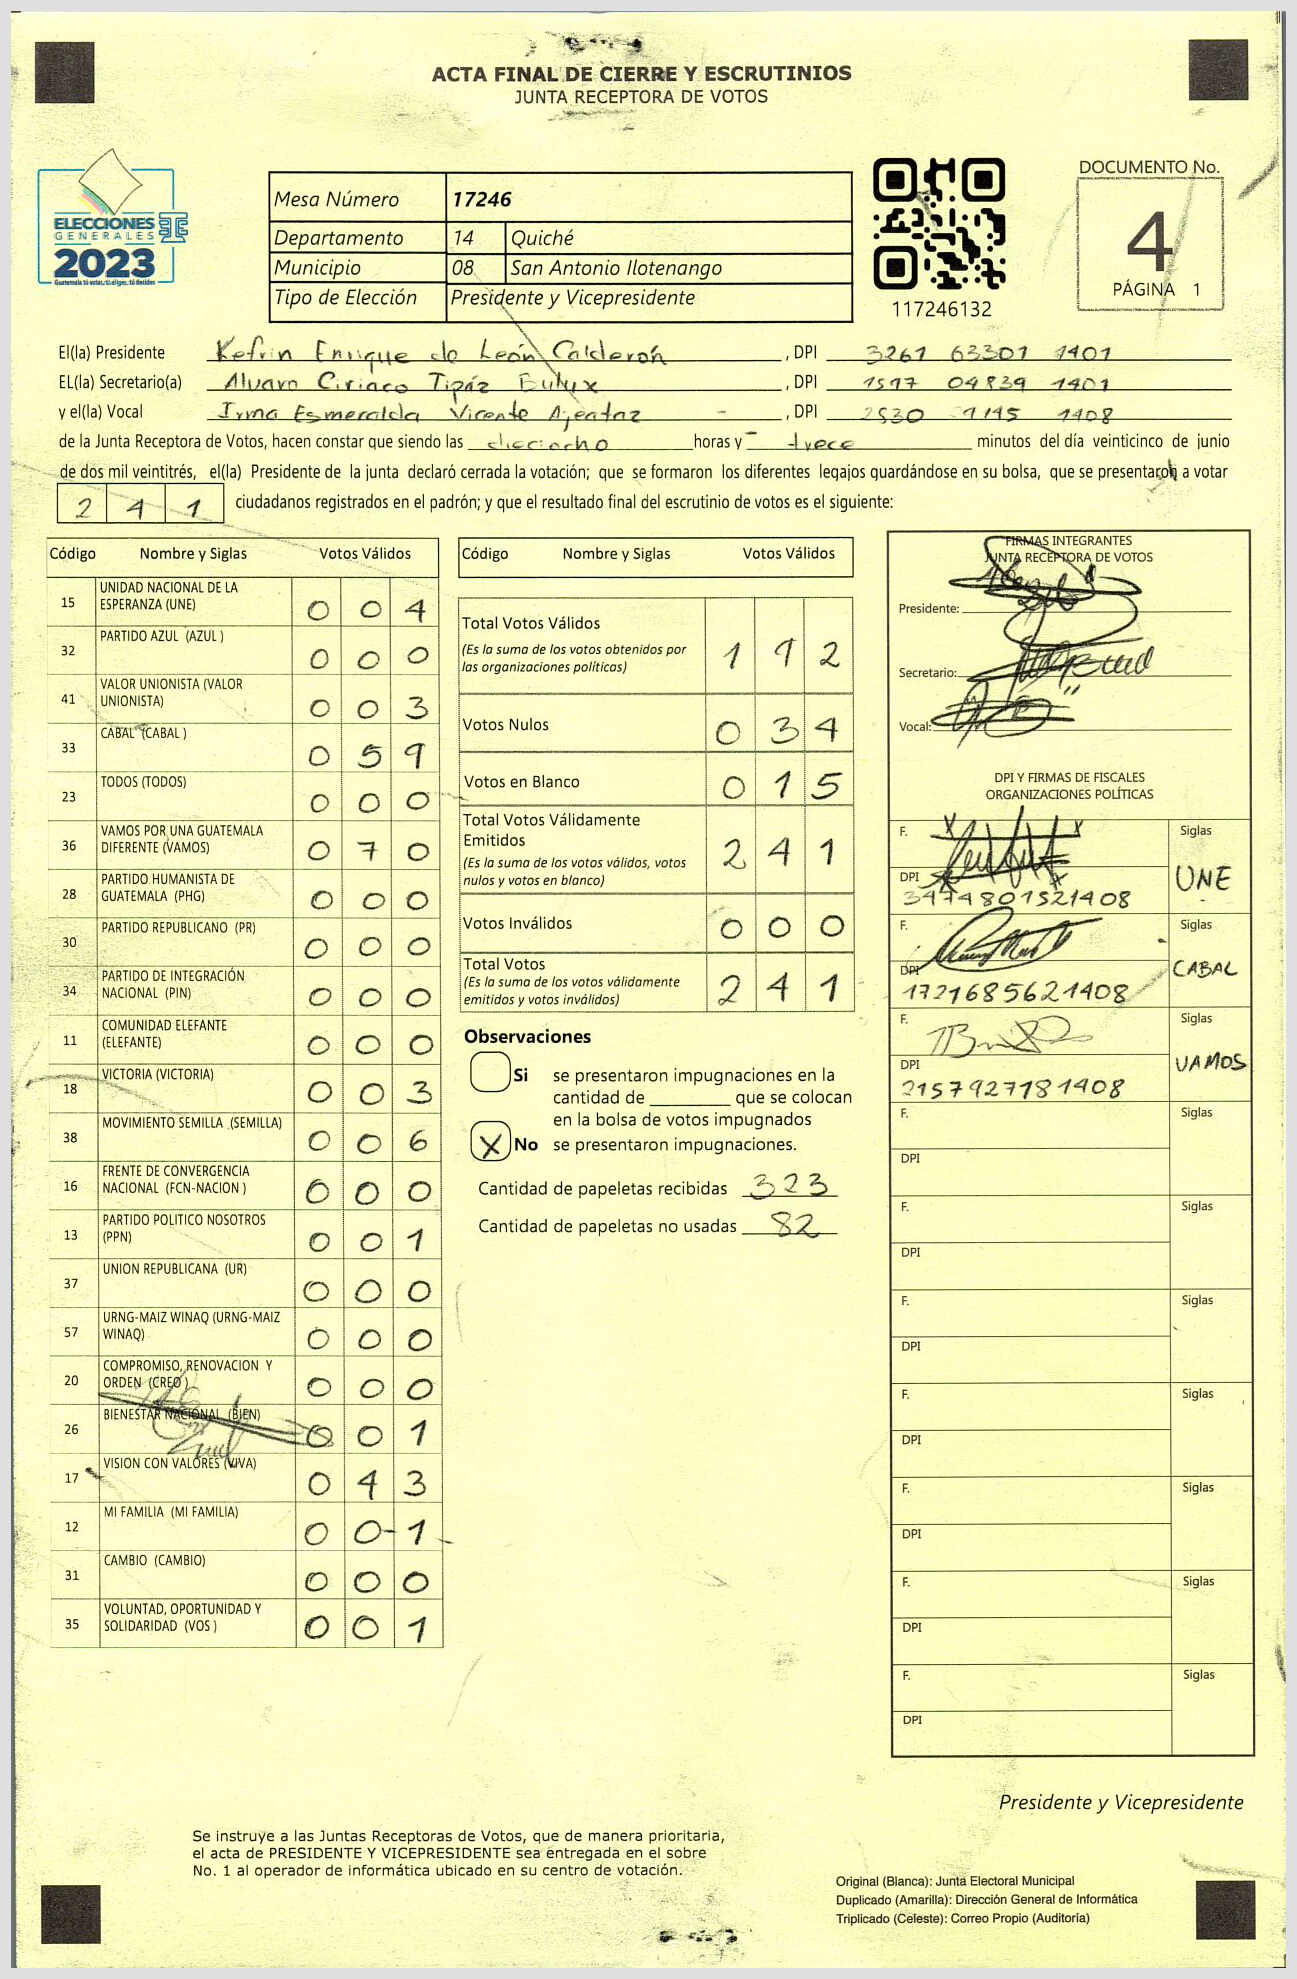 ACTA FINAL DE CIERRE Y ESCRUTINIOS
JUNTA RECEPTORA DE VOTOS
ELECCIONES
GENERALES
2023
Guatemala tú votas, tú eliges, tú decides
Mesa Número 17246
Departamento 14 Quiché
Municipio 08 San Antonio Ilotenango
Tipo de Elección Presidente y Vicepresidente
117246132
DOCUMENTO No.
4
PÁGINA 1
El(la) Presidente Kefrin Enrique de León Calderón, DPI 3261 63301 1401
EL(la) Secretario(a) Alvaro Ciriaco Tipáz, DPI 1597 04839 1401
y el(la) Vocal Irma Esmeralda Vicente, DPI 2530 1408
de la Junta Receptora de Votos, hacen constar que siendo las dieciocho horas y trece minutos del día veinticinco de junio
de dos mil veintitrés, el(la) Presidente de la junta declaró cerrada la votación; que se formaron los diferentes legajos guardándose en su bolsa, que se presentaron a votar
2 4 1 ciudadanos registrados en el padrón; y que el resultado final del escrutinio de votos es el siguiente:
Código Nombre y Siglas Votos Válidos
15 UNIDAD NACIONAL DE LA ESPERANZA (UNE) 0 0 4
32 PARTIDO AZUL (AZUL ) 0 0 0
41 VALOR UNIONISTA (VALOR UNIONISTA) 0 0 3
33 CABAL (CABAL ) 0 5 9
23 TODOS (TODOS) 0 0 0
36 VAMOS POR UNA GUATEMALA DIFERENTE (VAMOS) 0 7 0
28 PARTIDO HUMANISTA DE GUATEMALA (PHG) 0 0 0
30 PARTIDO REPUBLICANO (PR) 0 0 0
34 PARTIDO DE INTEGRACIÓN NACIONAL (PIN) 0 0 0
11 COMUNIDAD ELEFANTE (ELEFANTE) 0 0 0
18 VICTORIA (VICTORIA) 0 0 3
38 MOVIMIENTO SEMILLA (SEMILLA) 0 0 6
16 FRENTE DE CONVERGENCIA NACIONAL (FCN-NACION ) 0 0 0
13 PARTIDO POLITICO NOSOTROS (PPN) 0 0 1
37 UNION REPUBLICANA (UR) 0 0 0
57 URNG-MAIZ WINAQ (URNG-MAIZ WINAQ) 0 0 0
20 COMPROMISO, RENOVACION Y ORDEN (CREO ) 0 0 0
26 BIENESTAR NACIONAL (BIEN) 0 0 1
17 VISION CON VALORES (VIVA) 0 4 3
12 MI FAMILIA (MI FAMILIA) 0 0 1
31 CAMBIO (CAMBIO) 0 0 0
35 VOLUNTAD, OPORTUNIDAD Y SOLIDARIDAD (VOS ) 0 0 1
Código Nombre y Siglas Votos Válidos
Total Votos Válidos 1 9 2
(Es la suma de los votos obtenidos por
las organizaciones políticas)
Votos Nulos 0 3 4
Votos en Blanco 0 1 5
Total Votos Válidamente
Emitidos 2 4 1
(Es la suma de los votos válidos, votos
nulos y votos en blanco)
Votos Inválidos 0 0 0
Total Votos 2 4 1
(Es la suma de los votos válidamente
emitidos y votos inválidos)
Observaciones
Si se presentaron impugnaciones en la
cantidad de ________ que se colocan
en la bolsa de votos impugnados
X No se presentaron impugnaciones.
Cantidad de papeletas recibidas 323
Cantidad de papeletas no usadas 82
FIRMAS INTEGRANTES
JUNTA RECEPTORA DE VOTOS
Presidente:
Secretario:
Vocal:
DPI Y FIRMAS DE FISCALES
ORGANIZACIONES POLÍTICAS
F. Siglas
DPI UNE
3474801521408
F. Siglas
DPI CABAL
1721685621408
F. Siglas
DPI VAMOS
2157927181408
F. Siglas
DPI
F. Siglas
DPI
F. Siglas
DPI
F. Siglas
DPI
F. Siglas
DPI
F. Siglas
DPI
F. Siglas
DPI
Presidente y Vicepresidente
Se instruye a las Juntas Receptoras de Votos, que de manera prioritaria,
el acta de PRESIDENTE Y VICEPRESIDENTE sea entregada en el sobre
No. 1 al operador de informática ubicado en su centro de votación.
Original (Blanca): Junta Electoral Municipal
Duplicado (Amarilla): Dirección General de Informática
Triplicado (Celeste): Correo Propio (Auditoría)